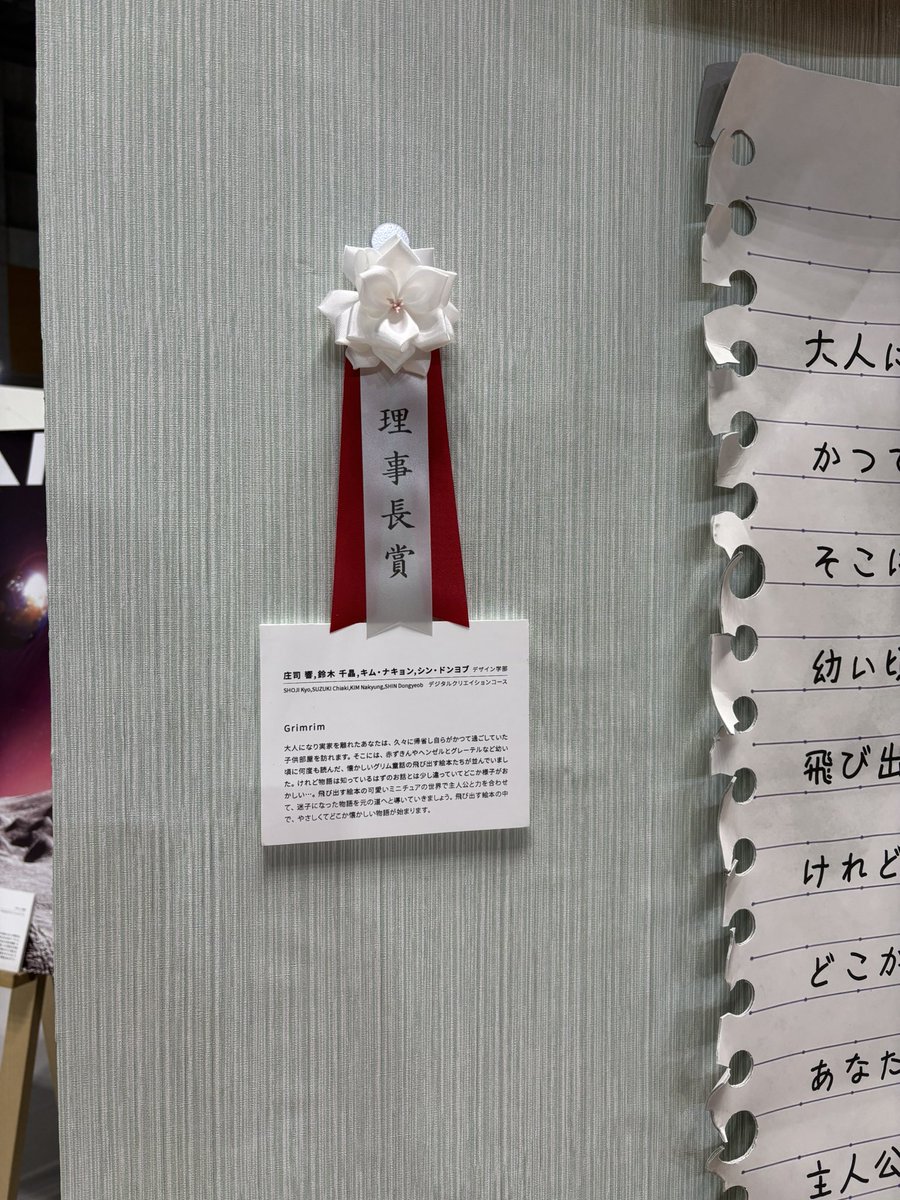 理事長賞
庄司 響,鈴木 千晶,キム・ナキョン,シン・ドンヨプ デザイン学部
SHOJI Kyo,SUZUKI Chiaki,KIM Nakyung,SHIN Dongyeob デジタルクリエイションコース
Grimrim
大人になり実家を離れたあなたは、久々に帰省し自らがかつて過ごしていた
子供部屋を訪れます。そこには、赤ずきんやヘンゼルとグレーテルなど幼い
頃に何度も読んだ、懐かしいグリム童話の飛び出す絵本たちが並んでいまし
た。けれど物語は知っているはずのお話とは少し違っていてどこか様子がお
かしい…。飛び出す絵本の可愛いミニチュアの世界で主人公と力を合わせ
て、迷子になった物語を元の道へと導いていきましょう。飛び出す絵本の中
で、やさしくてどこか懐かしい物語が始まります。
大人に
かつて
そこに
幼い頃
飛び出
けれど
どこか
あなた
主人公